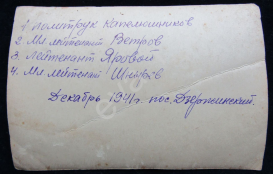 1. политрук Катемешников
2. Мл лейтенант Ветров
3. Лейтенант Яровой
4. Мл лейтенант
Декабрь 1941г. пос. Дзержинский.